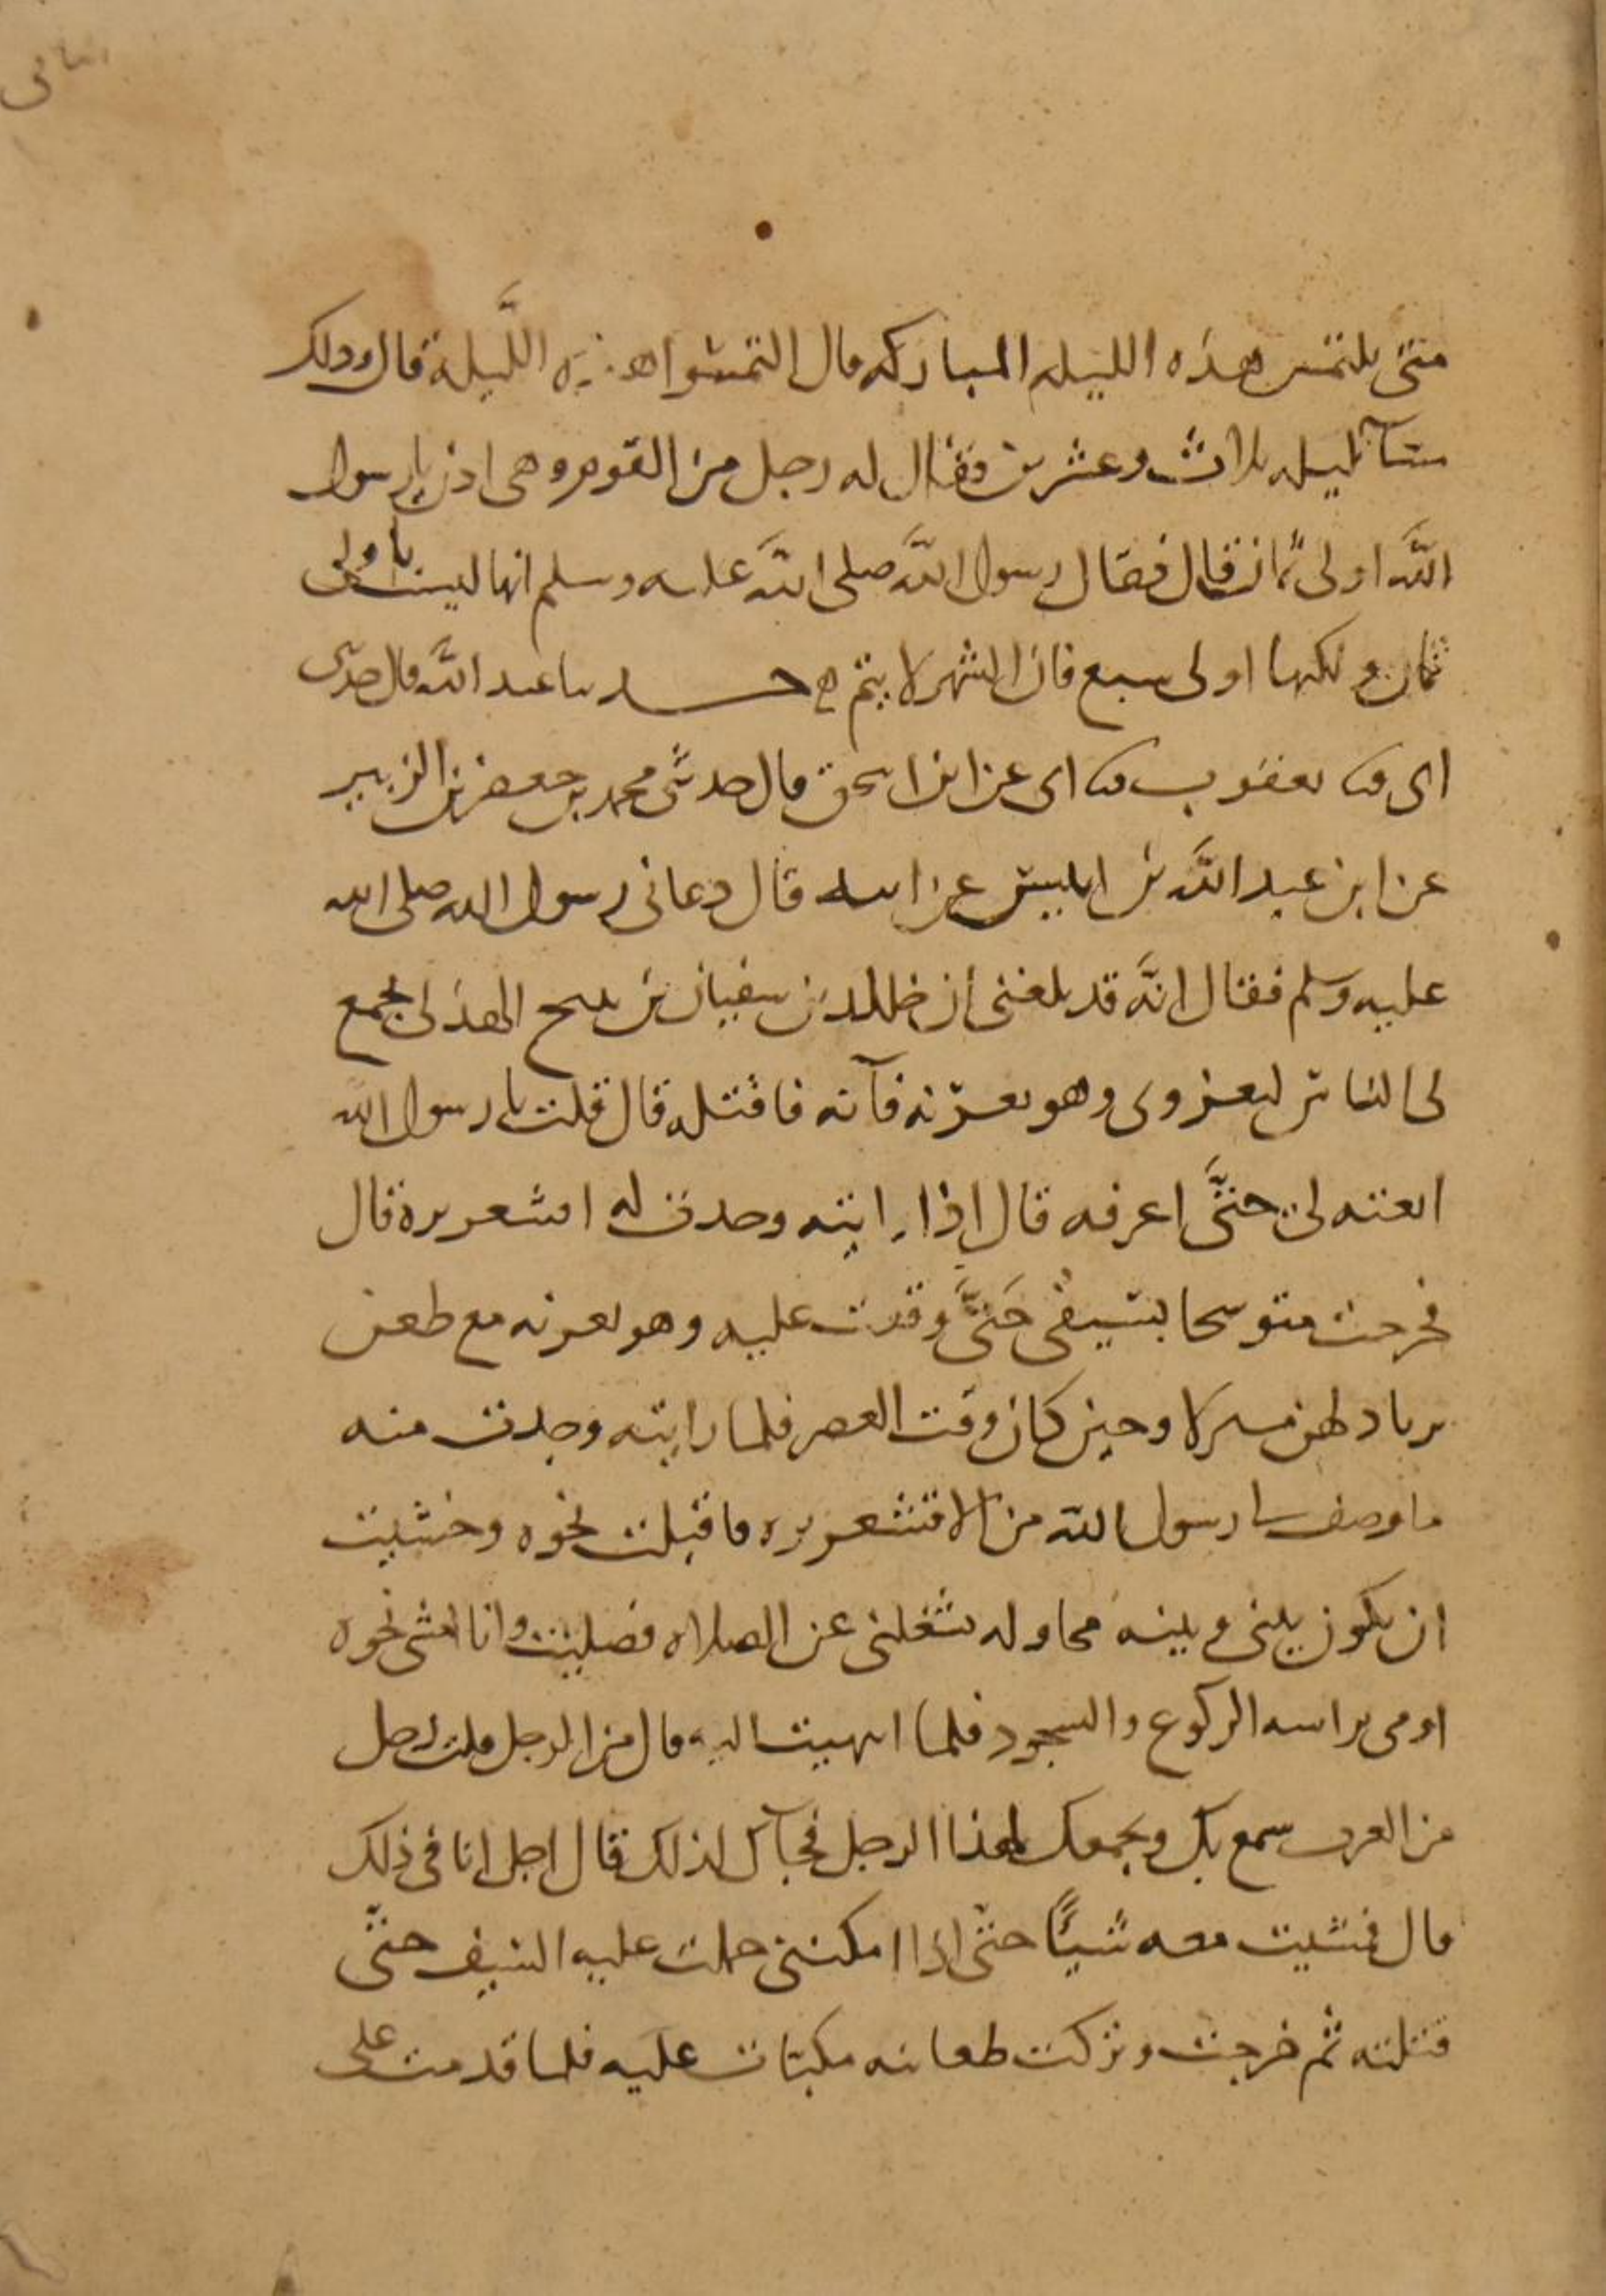 متى نلتمس هذه الليله المباركه قال التمسوا هذه الليلة قال وذلك
مسآ ليله ثلاث وعشرين فقال له رجل من القوم وهى اذن يا رسول
الله اولى ثمان قال فقال رسول الله صلى الله عليه وسلم انها ليست باولى
ثمان ولكنها اولى سبع فان الشهر لا يتم حدثنا عبد الله قال حدثنى
ابى ثنا يعقوب ثنا ابى عن ابن اسحق قال حدثنى محمد بن جعفر بن الزبير
عن ابن عبد الله بن انيس عن ابيه قال دعانى رسول الله صلى الله
عليه وسلم فقال انه قد بلغنى ان خالد بن سفيان بن نبيح الهذلى يجمع
لى الناس ليغزونى وهو بعرنه فآته فاقتله قال قلت يا رسول الله
انعته لى حتى اعرفه قال اذا رايته وجدت له اقشعريرة قال
فخرجت متوشحا بسيفى حَتَّى وقعت عليه وهو بعرنه مع ظعن
يرتاد لهن منزلا وحين كان وقت العصر فلما رايته وجدت منه
ما وصف لى رسول الله من الاقشعريره فاقبلت نحوه وخشيت
ان يكون بينى وبينه محاوله تشغلنى عن الصلاه فصليت وانا امشى نحوه
اومى براسه الركوع والسجود فلما انتهيت اليه قال من الرجل قلت رجل
من العرب سمع بك وبجمعك لهذا الرجل فجآك لذلك قال اجل انا فى ذلك
قال فمشيت معه شيئًا حتى اذا امكننى حملت عليه السيف حتى
قتلته ثم خرجت وتركت ظعاينه مكبات عليه فلما قدمت على